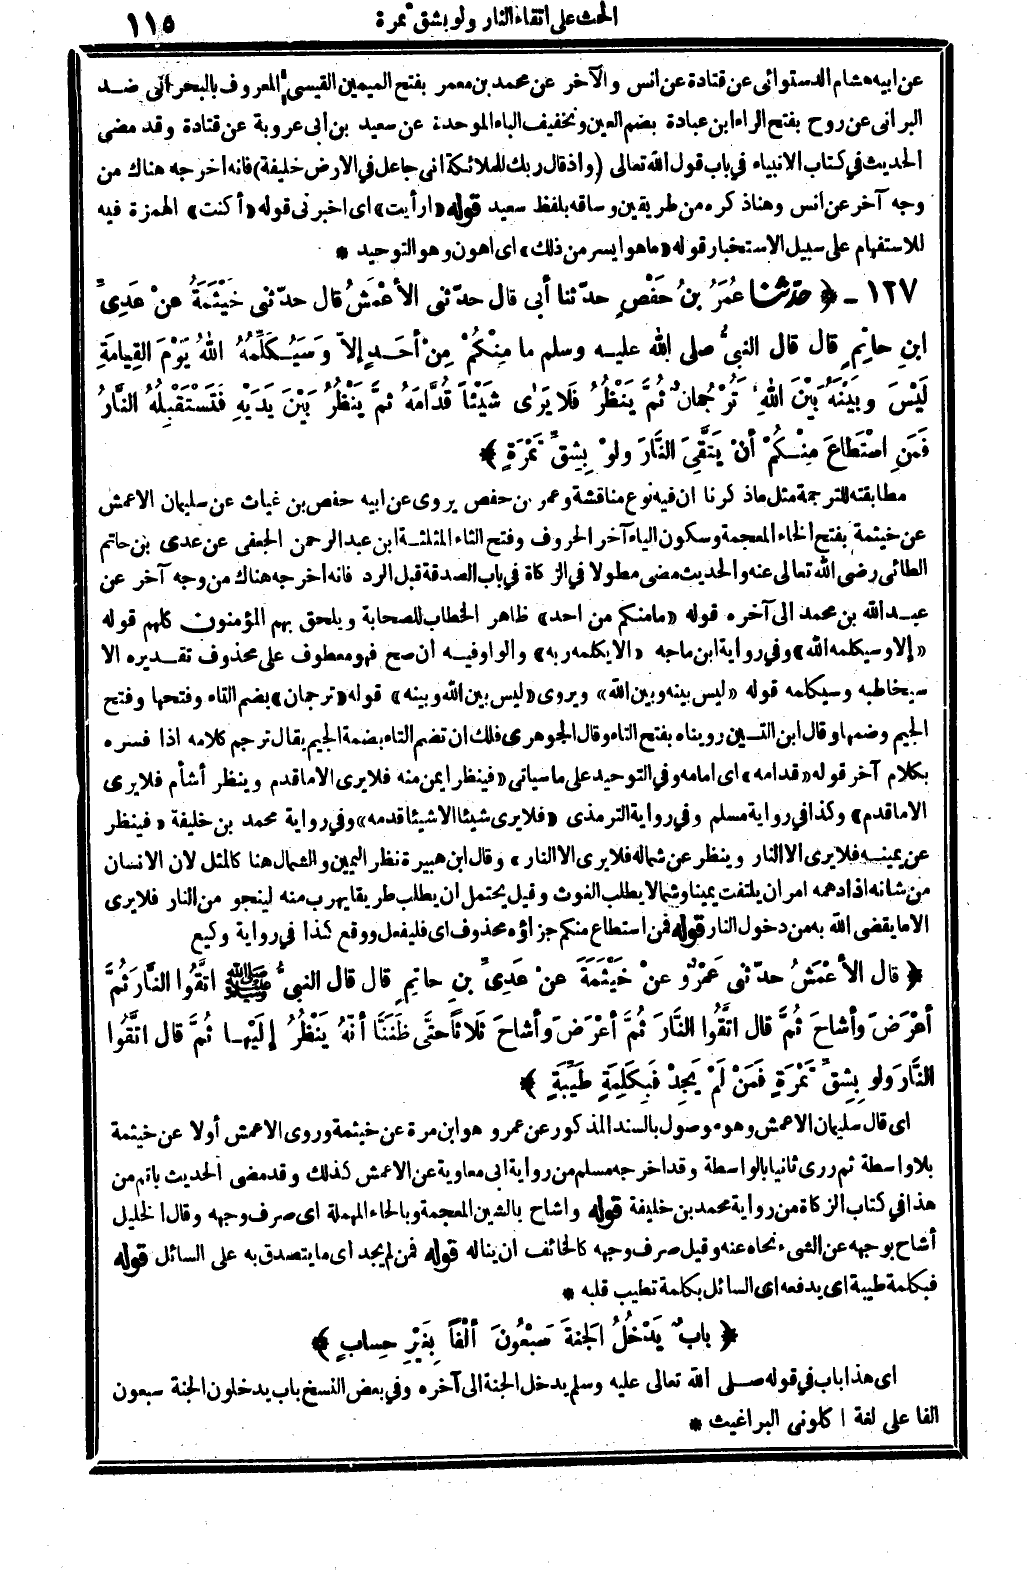 الحث على اتقاء النار ولو بشق تمرة ١١٥
عن ابيه هشام الدستوائى عن قتادة عن انس والآخر عن محمد بن معمر بفتح الميمين القيسى المعروف بالبحرانى ضد
البرانى عن روح بفتح الراء ابن عبادة بضم العين وتخفيف الباء الموحدة عن سعيد بن ابى عروبة عن قتادة وقد مضى
الحديث في كتاب الانبياء في باب قول الله تعالى (واذ قال ربك للملائكة انى جاعل في الارض خليفة) فانه اخرجه هناك من
وجه آخر عن انس وهنا ذكره من طريقين وساقه بلفظ سعيد قوله «ارأيت» اى اخبرنى قوله «أكنت» الهمزة فيه
للاستفهام على سبيل الاستخبار قوله «ما هو ايسر من ذلك» اى اهون وهو التوحيد *
١٢٧ - ﴿ حدثنا عُمَرُ بنُ حَفْصٍ حدّثنا أبى قال حدّثنى الأعْمَشُ قال حدّثنى خَيْثَمَةُ عنْ عَدِىِّ
ابنِ حاتِمٍ قال قال النبىُّ صلى الله عليه وسلم ما مِنْكُمْ مِنْ أحَدٍ إلاّ وَسَيُكَلِّمُهُ اللهُ يَوْمَ القِيامَةِ
لَيْسَ وبَيْنَهُ بَيْنَ اللهِ تَرْجُمانٌ ثُمَّ يَنْظُرُ فَلا يَرَى شَيْئاً قُدَّامَهُ ثمَّ يَنْظُرُ بَيْنَ يَدَيْهِ فَتَسْتَقْبِلُهُ النَّارُ
فَمَنِ اسْتَطَاعَ مِنْكُمْ أنْ يَتَّقِىَ النَّارَ ولوْ بِشِقِّ تَمْرَةٍ ﴾
مطابقته للترجمة مثل ماذكرنا ان فيه نوع مناقشة وعمر بن حفص يروى عن ابيه حفص بن غياث عن سليمان الاعمش
عن خيثمة بفتح الخاء المعجمة وسكون الياء آخر الحروف وفتح الثاء المثلثة ابن عبد الرحمن الجعفى عن عدى بن حاتم
الطائى رضى الله تعالى عنه والحديث مضى مطولا في الزكاة في باب الصدقة قبل الرد فانه اخرجه هناك من وجه آخر عن
عبد الله بن محمد الى آخره قوله «مامنكم من احد» ظاهر الخطاب للصحابة ويلحق بهم المؤمنون كلهم قوله
«إلا وسيكلمه الله» وفي رواية ابن ماجه «الايكلمه ربه» والواو فيه ان صح فهو معطوف على محذوف تقديره الا
سيخاطبه وسيكلمه قوله «ليس بينه وبين الله» ويروى «ليس بين الله وبينه» قوله «ترجمان» بضم التاء وفتحها وفتح
الجيم وضمها وقال ابن التين رويناه بفتح التاء وقال الجوهرى فلك ان تضم التاء بضمة الجيم يقال ترجم كلامه اذا فسره
بكلام آخر قوله «قدامه» اى امامه وفي التوحيد على ماسياتى «فينظر ايمن منه فلايرى الا ماقدم وينظر أشأم فلايرى
الا ماقدم» وكذا في رواية مسلم وفي رواية الترمذى «فلايرى شيئا الا شيئا قدمه» وفي رواية محمد بن خليفة «فينظر
عن يمينه فلايرى الا النار وينظر عن شماله فلايرى الا النار» وقال ابن هبيرة نظر اليمين والشمال هنا كالمثل لان الانسان
من شانه اذا دهمه امر ان يلتفت يمينا وشمالا يطلب الغوث وقيل يحتمل ان يطلب طريقا يهرب منه لينجو من النار فلايرى
الا ما يقضى الله به من دخول النار قوله فمن استطاع منكم جزاؤه محذوف اى فليفعل ووقع كذا في رواية وكيع
﴿ قال الأعْمَشُ حدّثنى عَمْرٌو عنْ خَيْثَمَةَ عنْ عَدِىِّ بنِ حاتِمٍ قال قال النبىُّ ﷺ اتَّقُوا النَّارَ ثُمَّ
أعْرَضَ وأشاحَ ثُمَّ قال اتَّقُوا النَّارَ ثُمَّ أعْرَضَ وأشاحَ ثَلاَثاً حتَّى ظَنَنَّا أنَّهُ يَنْظُرُ إلَيْها ثُمَّ قال اتَّقُوا
النَّارَ ولو بِشِقِّ تَمْرَةٍ فَمَنْ لَمْ يَجِدْ فَبِكَلِمَةٍ طَيِّبَةٍ ﴾
اى قال سليمان الاعمش وهو موصول بالسند المذكور عن عمرو هو ابن مرة عن خيثمة وروى الاعمش أولا عن خيثمة
بلا واسطة ثم روى ثانيا بالواسطة وقد اخرجه مسلم من رواية ابى معاوية عن الاعمش كذلك وقد مضى الحديث باتم من
هذا في كتاب الزكاة من رواية محمد بن خليفة قوله واشاح بالشين المعجمة وبالحاء المهملة اى صرف وجهه وقال الخليل
أشاح بوجهه عن الشىء نحاه عنه وقيل صرف وجهه كالخائف ان يناله قوله فمن لم يجد اى ما يتصدق به على السائل قوله
فبكلمة طيبة اى يدفعه اى السائل بكلمة تطيب قلبه *
﴿ بابٌ يَدْخُلُ الجَنةَ سَبْعُونَ ألْفاً بِغَيْرِ حِسابٍ ﴾
اى هذا باب في قوله صلى الله تعالى عليه وسلم يدخل الجنة الى آخره وفي بعض النسخ باب يدخلون الجنة سبعون
الفا على لغة اكلونى البراغيث *